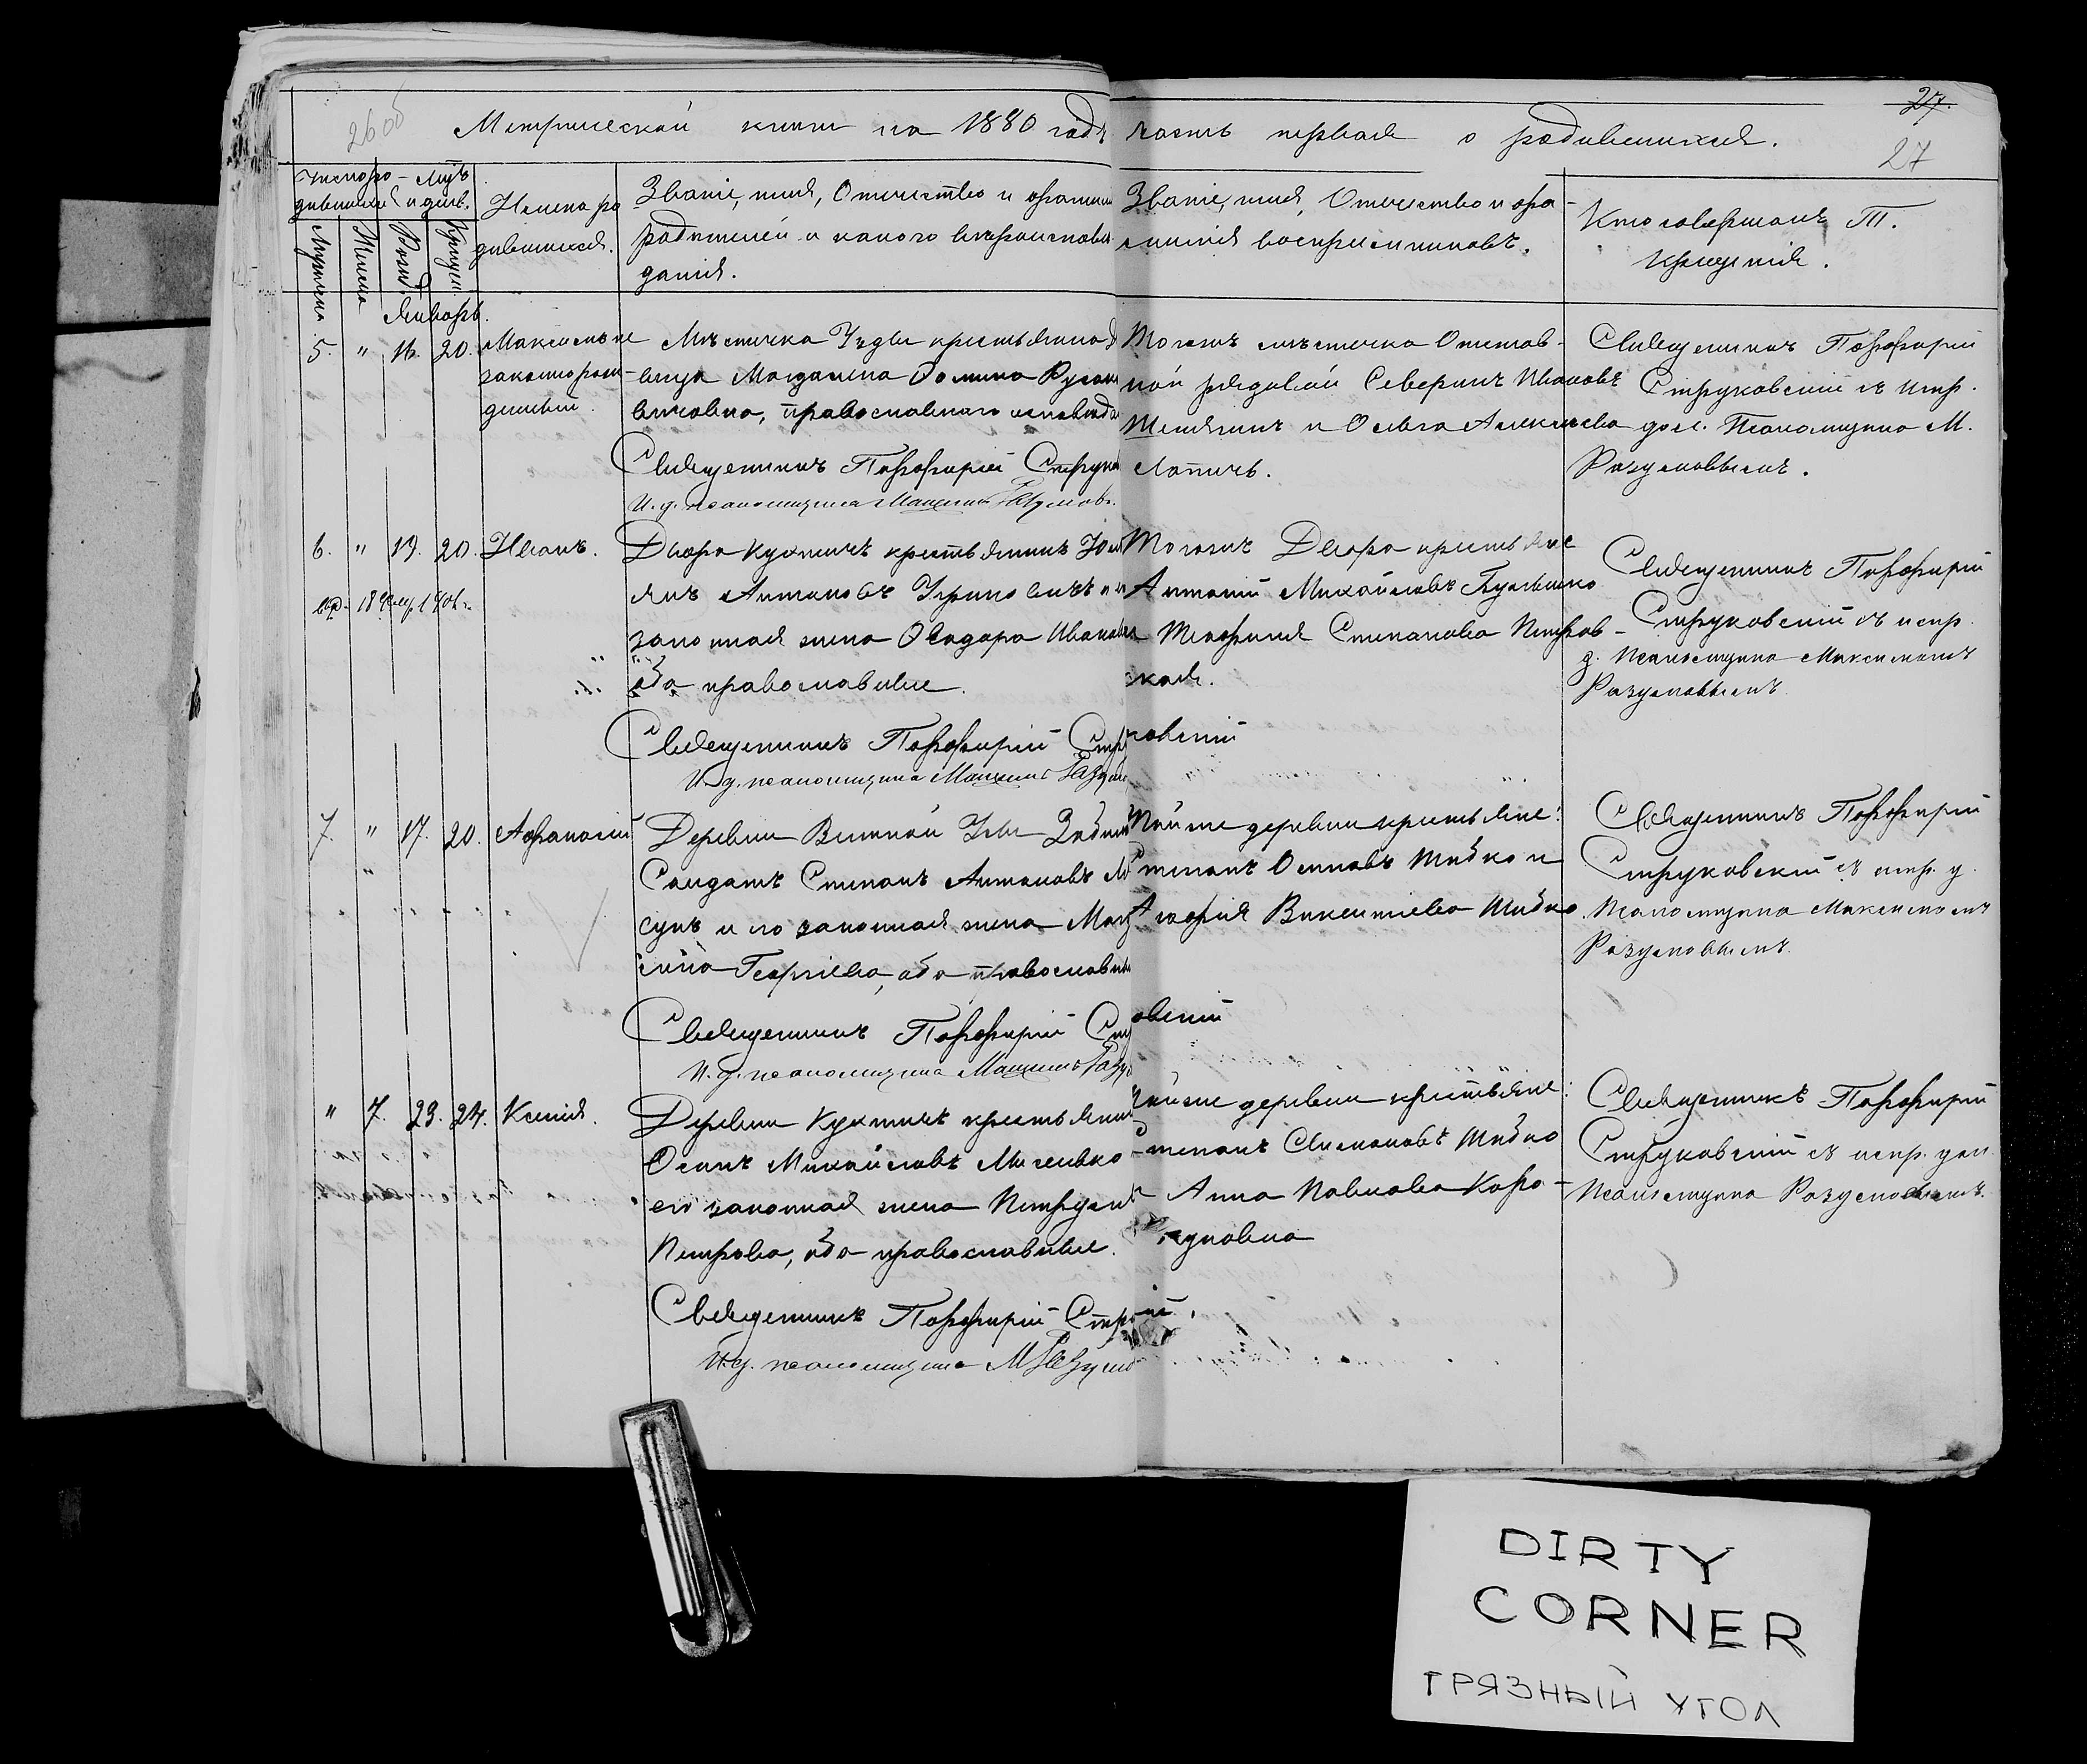 2605
Метрической книги на 1880 годъ часть первая о родившихся.
27.
27
Число ро-
дившихся
Мѣс.
и день.
Мужеска
Женска
Рожд.
Крещен.
Имена ро
дившихся.
Званіе, имя, Отчество и фамилія
родителей и какого вѣроисповѣ
данія.
Званіе, имя, Отчество и фа-
милія воспріемниковъ.
Кто совершалъ Т.
крещенія.
Январь.
5. " 16. 20. Максимъ не
законорож-
денный.
Мѣстечка Узды крестьянка д
вица Магдалина Фомина
православнаго исповѣда
Священникъ Порфирій Струко
И. д. псаломщика Максимъ Разумов.
Тогожъ мѣстечка Отстав-
ной рядовой Северинъ Ивановъ
и Ольга Алексѣева
Священникъ Порфирій
Струковскій съ испр.
долж. Псаломщика М.
Разумовымъ.
6. " 19. 20. Иванъ.
Двора Кухтичъ крестьянинъ
Антоновъ и
законная жена Ѳеодора Иванова
оба православные.
Священникъ Порфирій Струковскій
И. д. псаломщика Максимъ Разум
Тогожъ Двора крестьяне
Антоній Михайловъ
Степанова Петров-
ская.
Священникъ Порфирій
Струковскій съ испр.
д. Псаломщика Максимомъ
Разумовымъ.
7. " 17. 20. Афанасій
Деревни
Солдатъ Степанъ Антоновъ
и его законная жена
Георгіева, оба православны
Священникъ Порфирій Струковскій
И. д. псаломщика Максимъ Разу
Той же деревни крестьяне:
Степанъ Осиповъ Шибко и
Викентіева Шибко.
Священникъ Порфирій
Струковскій съ испр. д.
Псаломщика Максимомъ
Разумовымъ.
" 7. 23. 24. Ксенія.
Деревни Кухтичъ крестьянин
Осипъ Михайловъ
его законная жена
Петрова, оба православные.
Священникъ Порфирій
И. д. псаломщика М Разумо
Той же деревни крестьяне:
Степанъ Симоновъ Шибко
Анна Павлова
Священникъ Порфирій
Струковскій съ испр. дол
Псаломщика Разумовымъ.
DIRTY
CORNER
ГРЯЗНЫЙ УГОЛ